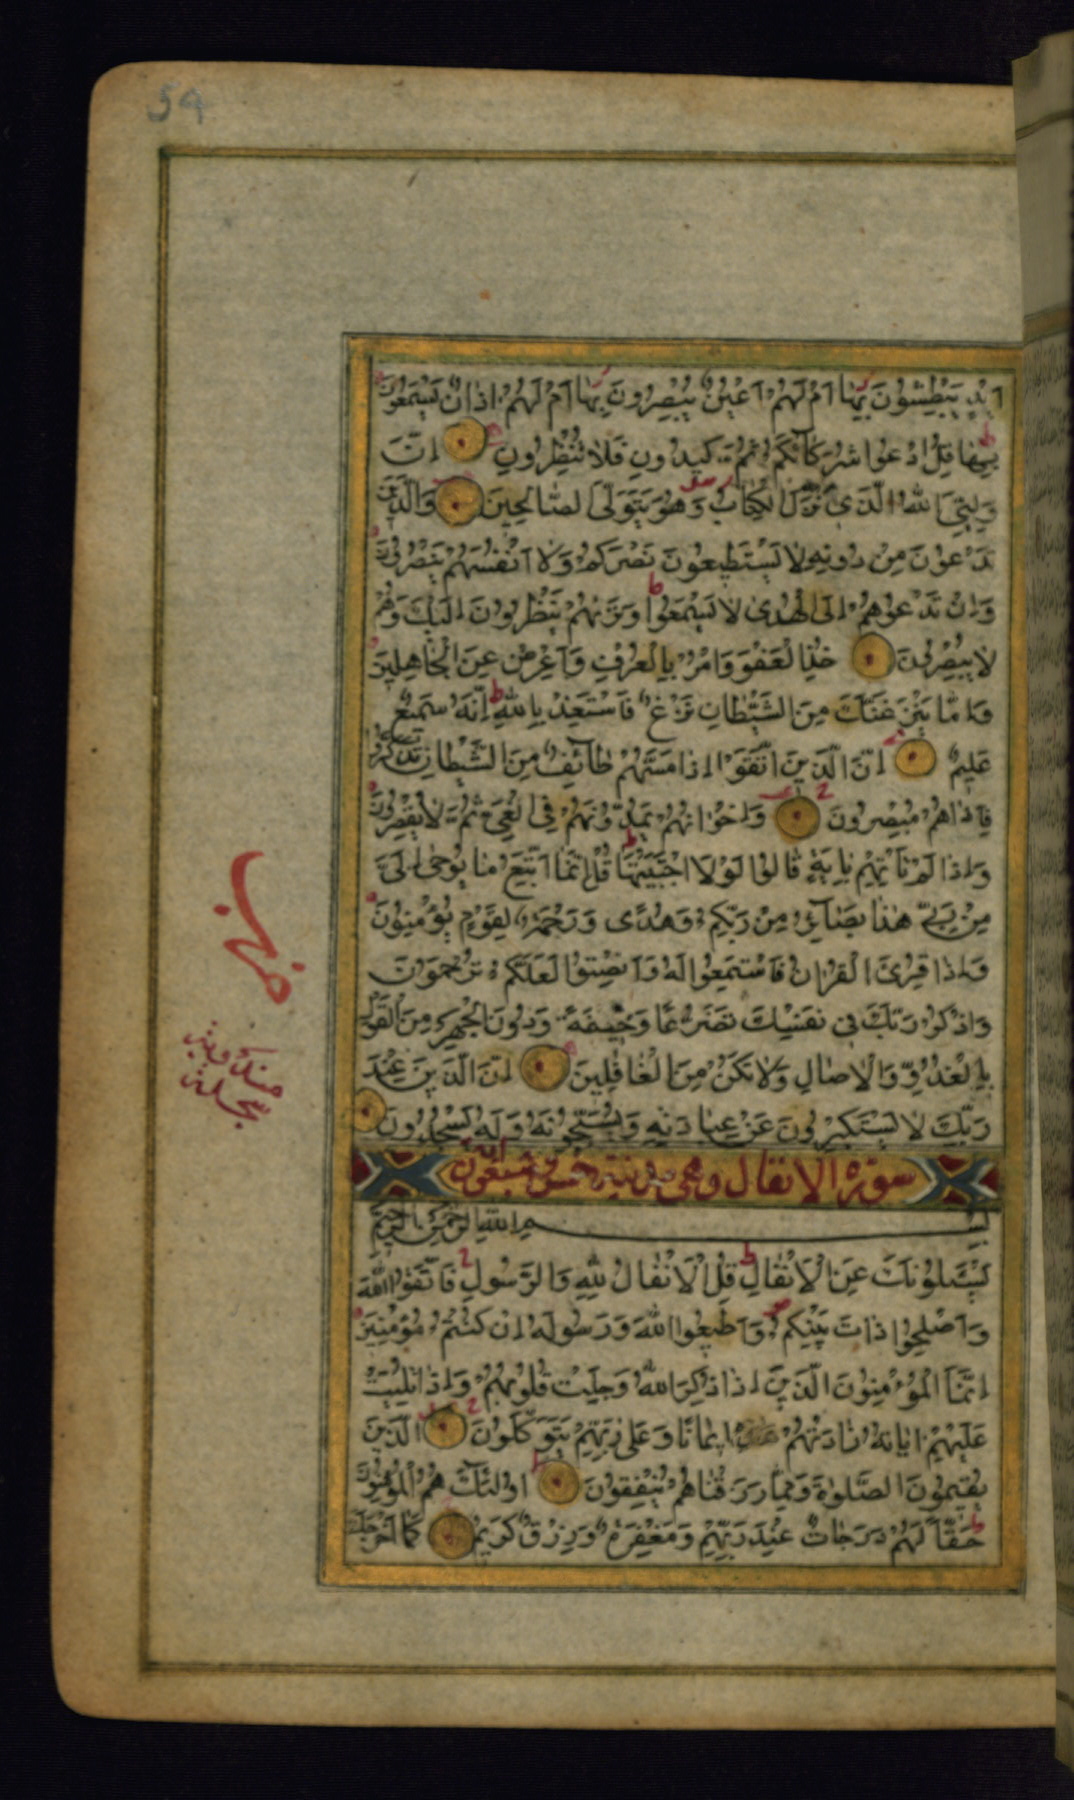 54
اَيْدٍ يَبْطِشُونَ بِهَا اَمْ لَهُمْ اَعْيُنٌ يُبْصِرُونَ بِهَا اَمْ لَهُمْ اٰذَانٌ يَسْمَعُونَ
بِهَا قُلِ ادْعُوا شُرَكَآئَكُمْ ثُمَّ كِيدُونِ فَلَا تُنْظِرُونِ اِنَّ
وَلِيِّىَ اللّٰهُ الَّذِى نَزَّلَ الْكِتَابَ وَهُوَ يَتَوَلَّى الصَّالِحِينَ وَالَّذِينَ
تَدْعُونَ مِنْ دُونِهِ لَا يَسْتَطِيعُونَ نَصْرَكُمْ وَلَا اَنْفُسَهُمْ يَنْصُرُونَ
وَاِنْ تَدْعُوهُمْ اِلَى الْهُدٰى لَا يَسْمَعُوا وَتَرٰيهُمْ يَنْظُرُونَ اِلَيْكَ وَهُمْ
لَا يُبْصِرُونَ خُذِ الْعَفْوَ وَاْمُرْ بِالْعُرْفِ وَاَعْرِضْ عَنِ الْجَاهِلِينَ
وَاِمَّا يَنْزَغَنَّكَ مِنَ الشَّيْطَانِ نَزْغٌ فَاسْتَعِذْ بِاللّٰهِ اِنَّهُ سَمِيعٌ
عَلِيمٌ اِنَّ الَّذِينَ اتَّقَوْا اِذَا مَسَّهُمْ طَآئِفٌ مِنَ الشَّيْطَانِ تَذَكَّرُوا
فَاِذَا هُمْ مُبْصِرُونَ وَاِخْوَانُهُمْ يَمُدُّونَهُمْ فِى الْغَىِّ ثُمَّ لَا يُقْصِرُونَ
وَاِذَا لَمْ تَاْتِهِمْ بِاٰيَةٍ قَالُوا لَوْلَا اجْتَبَيْتَهَا قُلْ اِنَّمَا اَتَّبِعُ مَا يُوحٰى اِلَىَّ
مِنْ رَبِّى هٰذَا بَصَآئِرُ مِنْ رَبِّكُمْ وَهُدًى وَرَحْمَةٌ لِقَوْمٍ يُؤْمِنُونَ
وَاِذَا قُرِئَ الْقُرْاٰنُ فَاسْتَمِعُوا لَهُ وَاَنْصِتُوا لَعَلَّكُمْ تُرْحَمُونَ
وَاذْكُرْ رَبَّكَ فِى نَفْسِكَ تَضَرُّعًا وَخِيفَةً وَدُونَ الْجَهْرِ مِنَ الْقَوْلِ
بِالْغُدُوِّ وَالْاٰصَالِ وَلَا تَكُنْ مِنَ الْغَافِلِينَ اِنَّ الَّذِينَ عِنْدَ
رَبِّكَ لَا يَسْتَكْبِرُونَ عَنْ عِبَادَتِهِ وَيُسَبِّحُونَهُ وَلَهُ يَسْجُدُونَ
سورة الانفال وهى مدنية خمس وسبعون
بِسْمِ اللّٰهِ الرَّحْمٰنِ الرَّحِيمِ
يَسْئَلُونَكَ عَنِ الْاَنْفَالِ قُلِ الْاَنْفَالُ لِلّٰهِ وَالرَّسُولِ فَاتَّقُوا اللّٰهَ
وَاَصْلِحُوا ذَاتَ بَيْنِكُمْ وَاَطِيعُوا اللّٰهَ وَرَسُولَهُ اِنْ كُنْتُمْ مُؤْمِنِينَ
اِنَّمَا الْمُؤْمِنُونَ الَّذِينَ اِذَا ذُكِرَ اللّٰهُ وَجِلَتْ قُلُوبُهُمْ وَاِذَا تُلِيَتْ
عَلَيْهِمْ اٰيَاتُهُ زَادَتْهُمْ اِيمَانًا وَعَلٰى رَبِّهِمْ يَتَوَكَّلُونَ الَّذِينَ
يُقِيمُونَ الصَّلٰوةَ وَمِمَّا رَزَقْنَاهُمْ يُنْفِقُونَ اُولٰئِكَ هُمُ الْمُؤْمِنُونَ
حَقًّا لَهُمْ دَرَجَاتٌ عِنْدَ رَبِّهِمْ وَمَغْفِرَةٌ وَرِزْقٌ كَرِيمٌ كَمَا اَخْرَجَكَ